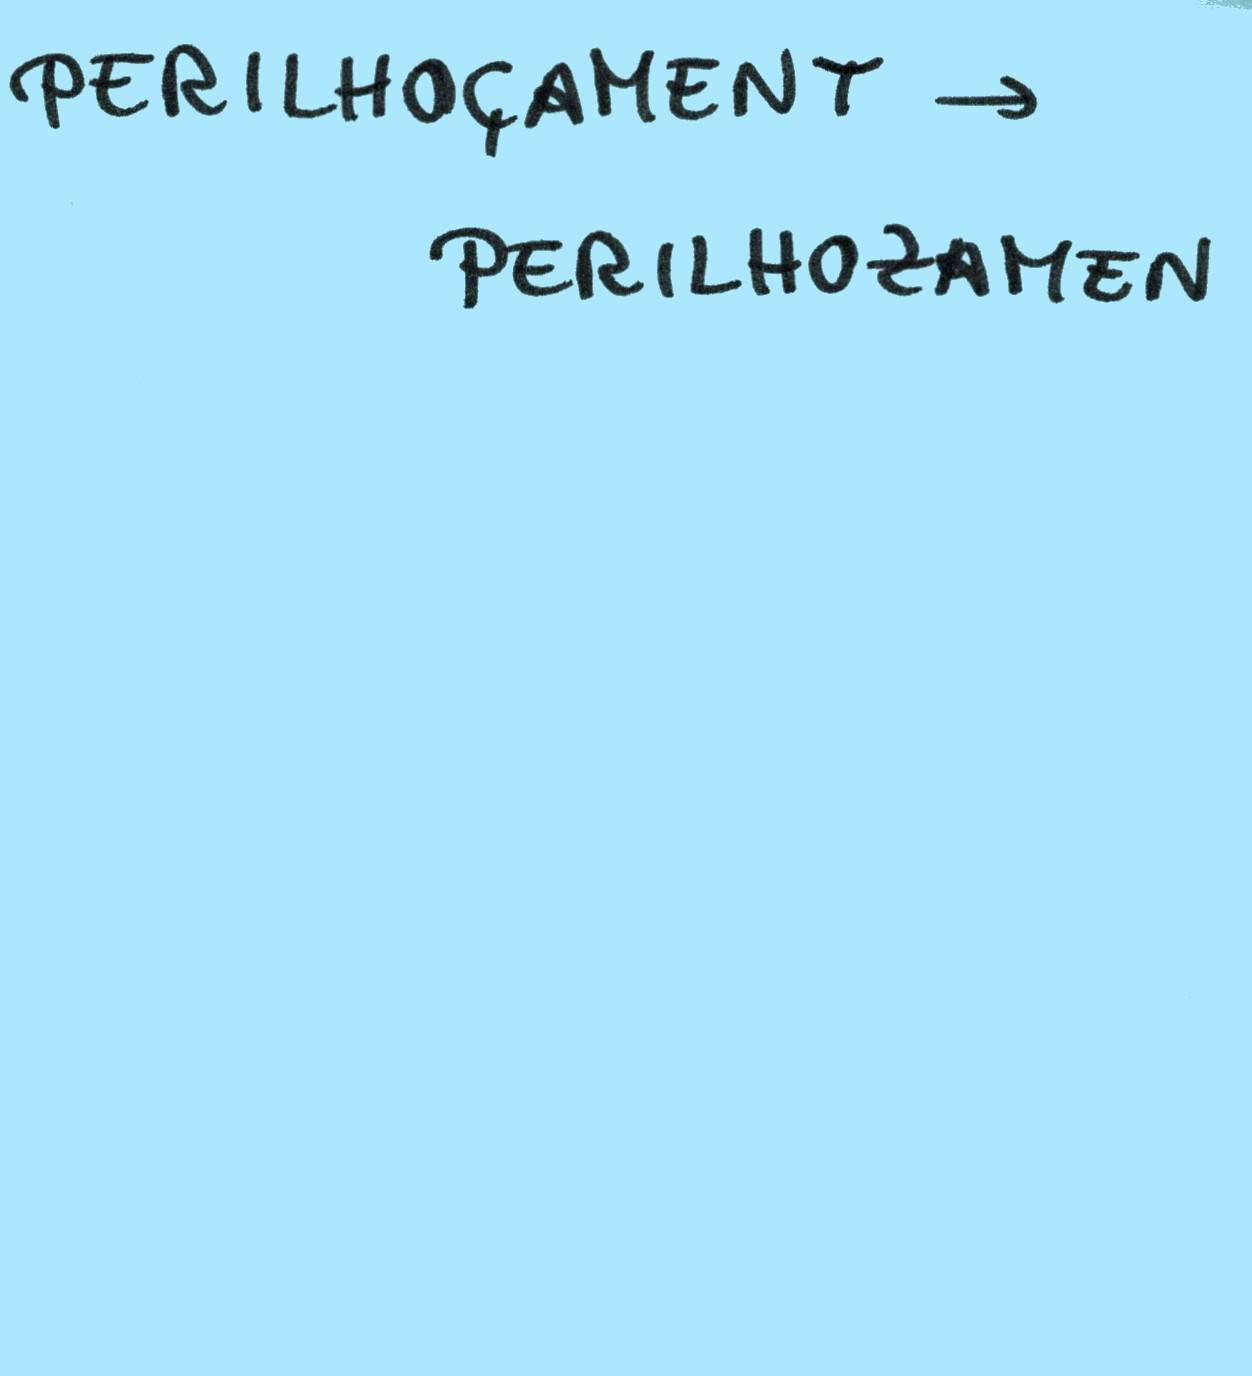 PERILHOÇAMENT →
PERILHOZAMEN